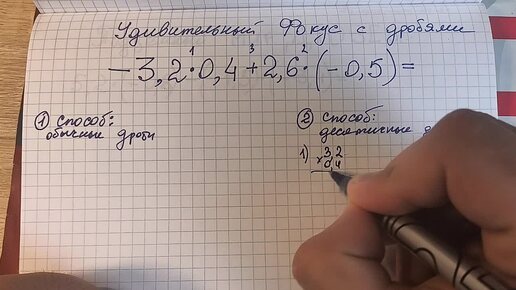 Удивительный Фокус с дробями
1 3 2
-3,2·0,4+2,6·(-0,5)=
① способ:
обычные дроби
② способ:
десятичные д
1) 3 2
× 0,4